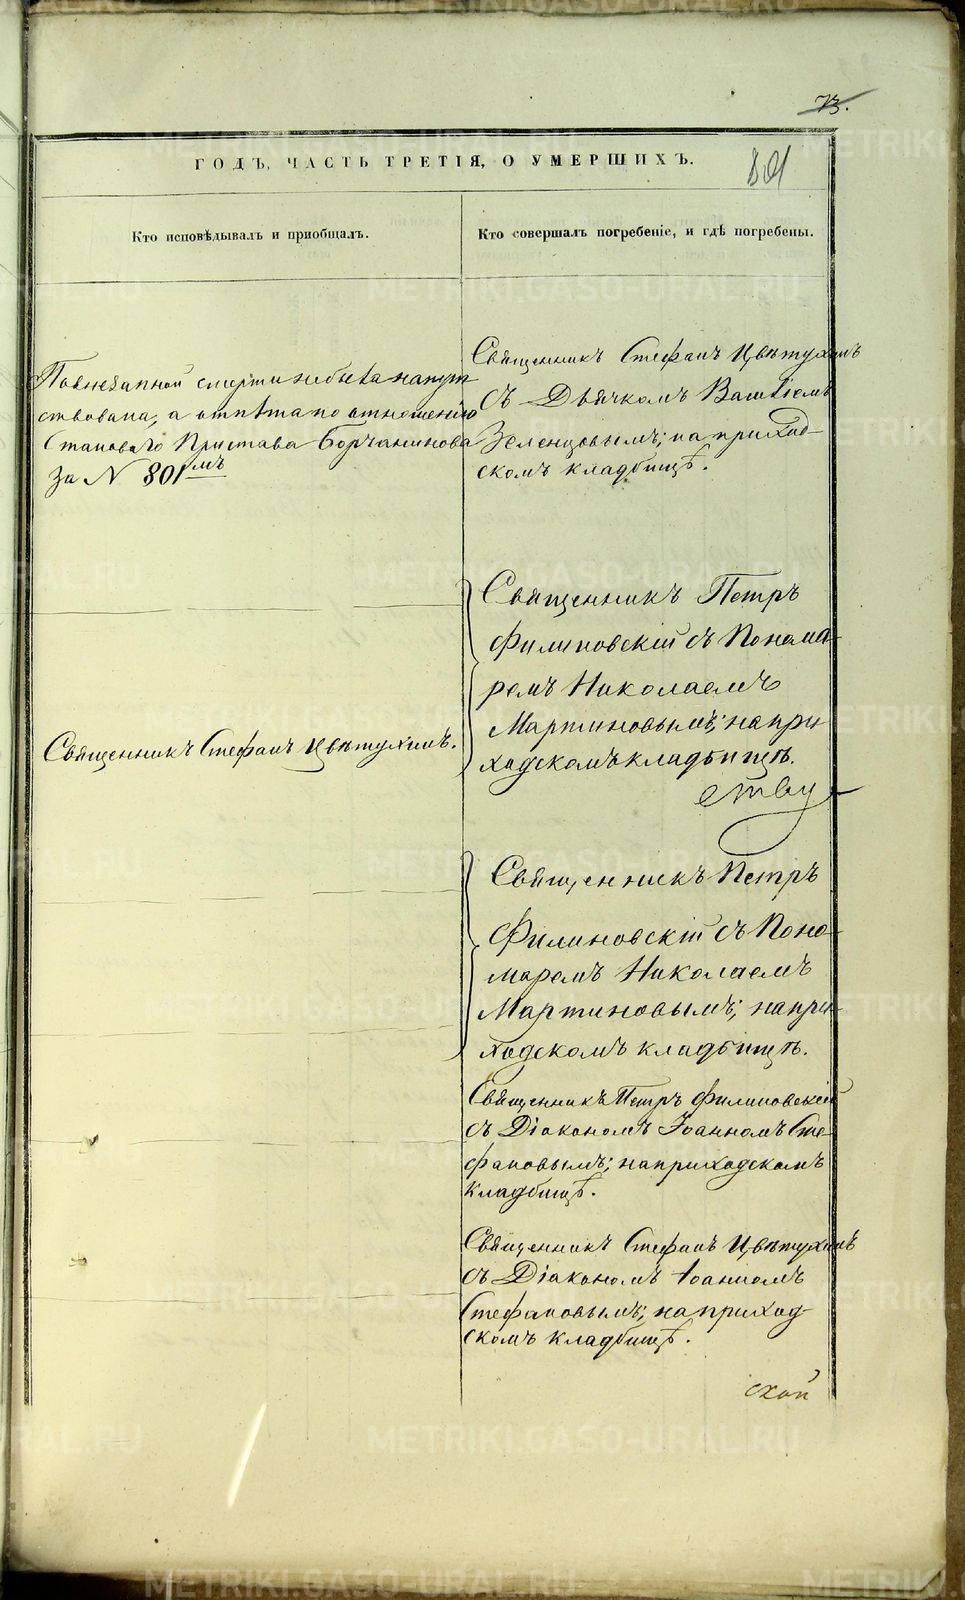 73.
ГОДЪ, ЧАСТЬ ТРЕТІЯ, О УМЕРШИХЪ.
801
Кто исповѣдывалъ и приобщалъ.
Кто совершалъ погребеніе, и гдѣ погребены.
По внезапной смерти не была напут
ствована, а отпѣта по отношенію
Становаго Пристава Борчанинова
за N 801мъ
Священникъ Стефанъ Цвѣтухинъ
съ Дьячкомъ Василіемъ
Зеленцовымъ; на приход
скомъ кладбищѣ.
Священникъ Стефанъ Цвѣтухинъ.
Священникъ Петръ
Филиповскій съ Понома
ремъ Николаемъ
Мартиновымъ; на при
ходскомъ кладбищѣ.
Священникъ Петръ
Филиновскій съ Поно
маремъ Николаемъ
Мартиновымъ; на при
ходскомъ кладбищѣ.
Священникъ Петръ Филиповскій
съ Діакономъ Іоанномъ Сте
фановымъ; на приходскомъ
кладбищѣ.
Священникъ Стефанъ Цвѣтухинъ
съ Діакономъ Іоанномъ
Стефановымъ; на приход
скомъ кладбищѣ.
ской
METRIKI.GASO-URAL.RU